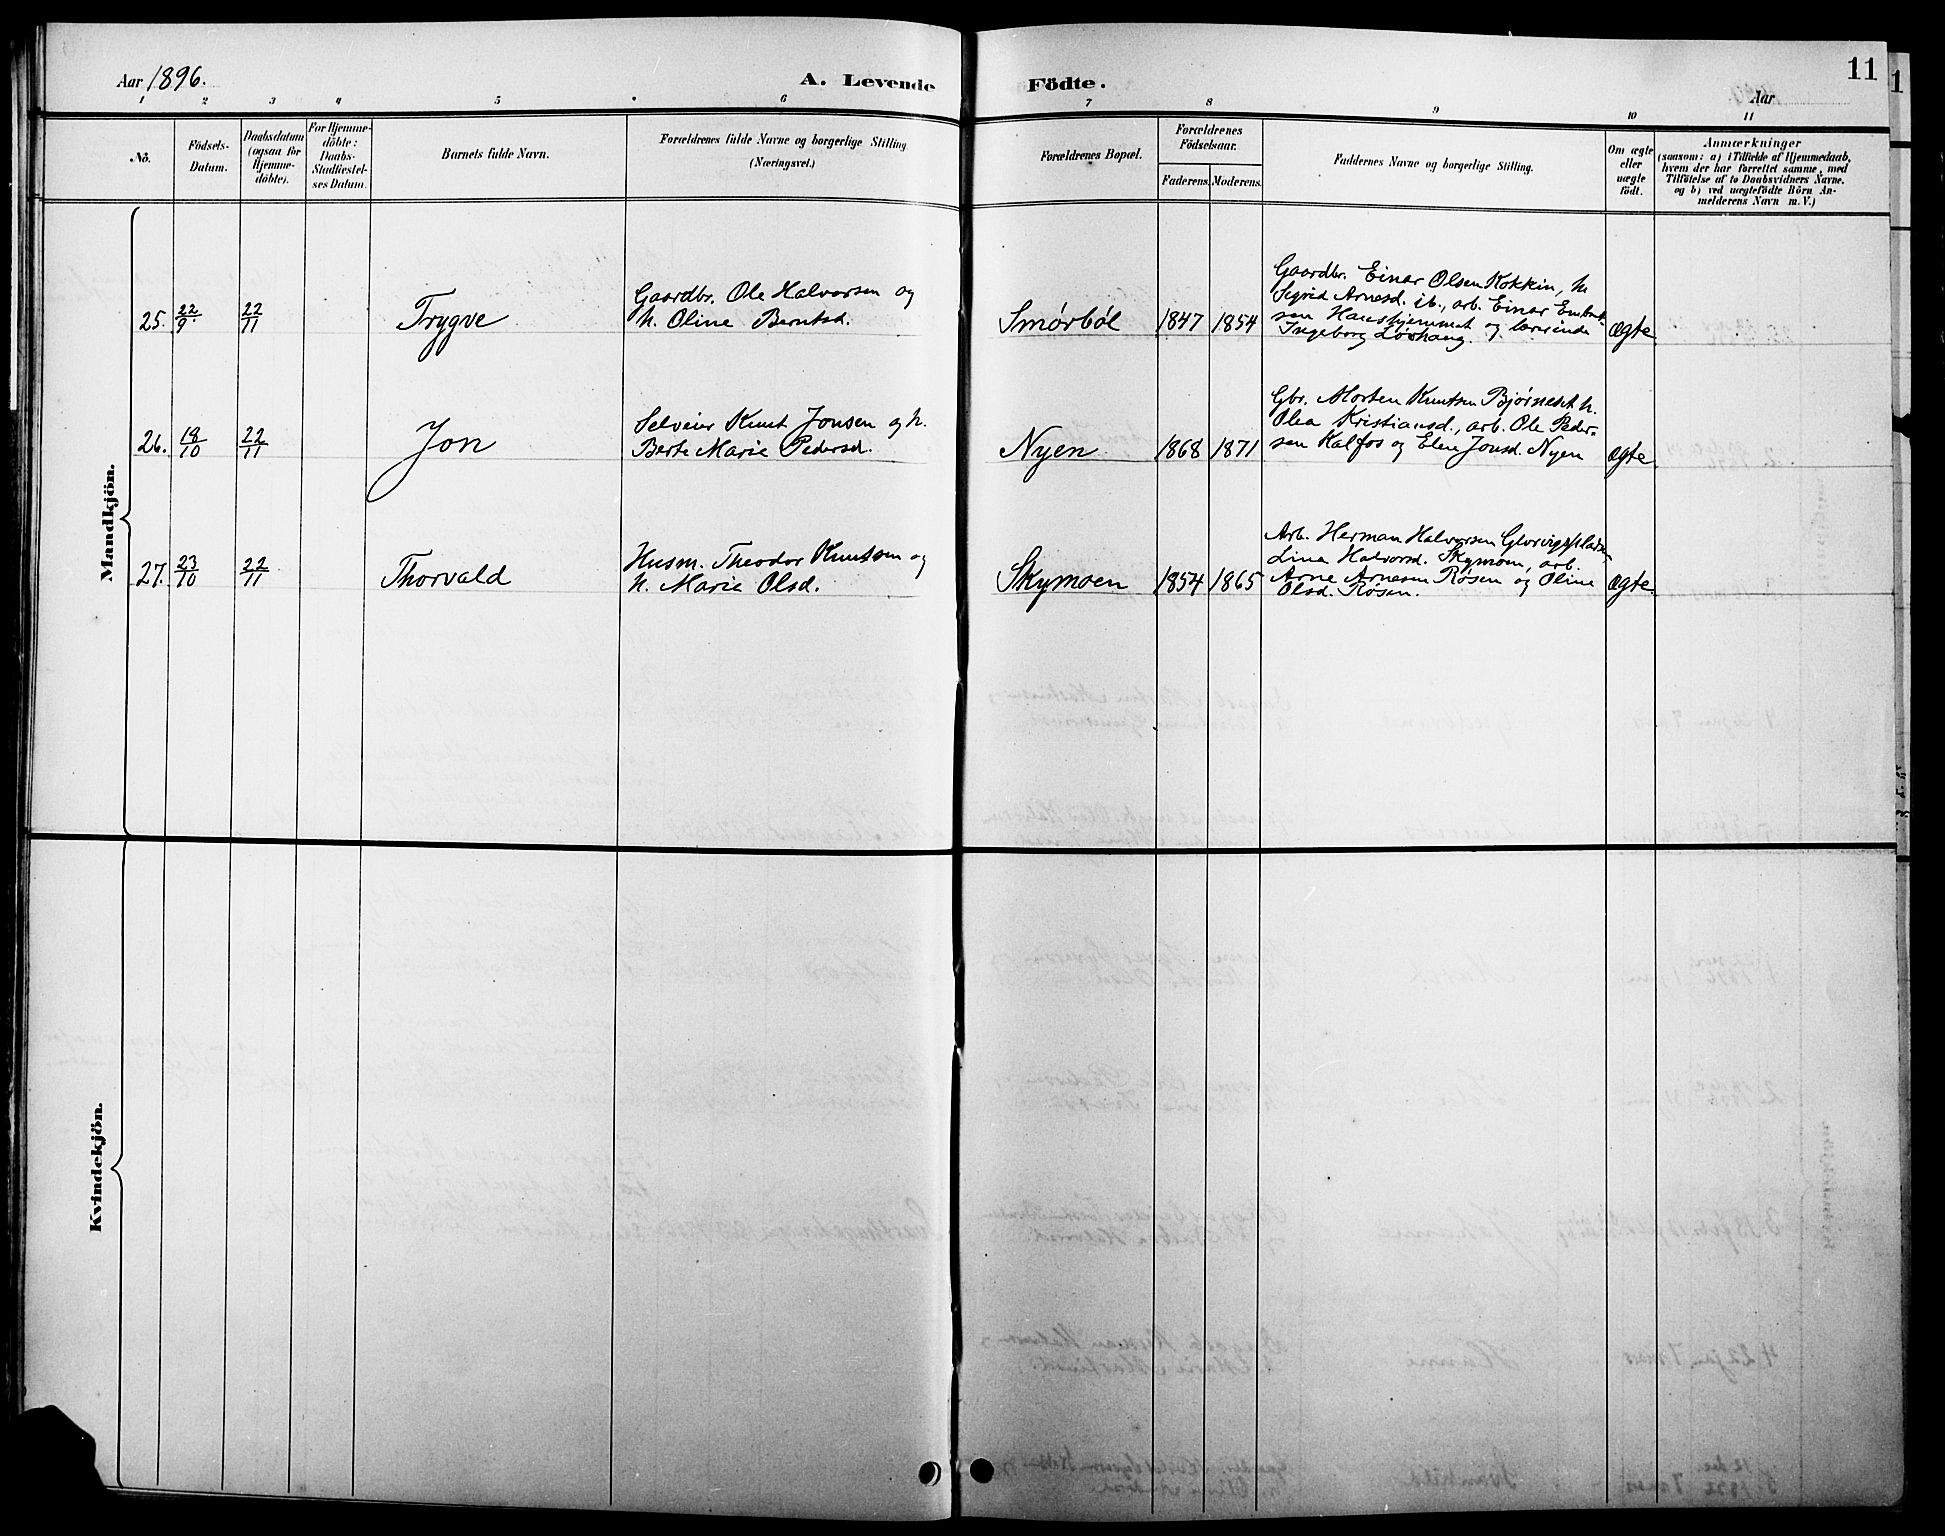 Aar 1896.
A. Levende Födte.
11
Aar
1 2 3 4 5 6 7 8 9 10 11
Nō.
Födsels-
Datum.
Daabsdatum
(ogsaa for
Hjemme-
döbte).
For Hjemme-
döbte:
Daabs-
Stadfæstel-
ses Datum.
Barnets fulde Navn.
Forældrenes fulde Navne og borgerlige Stilling
(Næringsvei.)
Forældrenes Bopæl.
Forældrenes
Födselsaar.
Faderens. Moderens.
Faddernes Navne og borgerlige Stilling.
Om ægte
eller
uægte
födt.
Anmærkninger
(saasom: a) i Tilfælde af Hjemmedaab,
hvem der har forrettet samme, med
Tilföielse af to Daabsvidners Navne,
og b) ved uægtefödte Börn An-
melderens Navn m. V.)
Mandkjön.
25. 22/9. 22/11 Trygve
Gaardbr. Ole Halvorsen og
h. Oline Berntsd.
Smørbøl 1847 1854
Gaardbr. Einar Olsen Kokkin, h.
Sigrid Arnesd. ib., arb. Einar
sen Hanshjemmet og lærerinde
Ingeborg Løvhaug.
Ægte.
26. 18/10 22/11 Jon
Selveier Knut Jonsen og h.
Berte Marie Pedersd.
Nyen 1868 1871
Gbr. Morten Knutsen Bjørneset h.
Olea Kristiansd., arb. Ole Peder-
sen Kalfos og Elen Jonsd. Nyen
Ægte.
27. 23/10 22/11 Thorvald
Husm. Theodor Knutsen og
h. Marie Olsd.
Skymoen 1854 1865
Arb. Herman Halvorsen
Lina Halvorsd. Skymoen, arb.
Arne Arnesen Røsen og Oline
Olsd. Røsen.
Ægte.
Kvindekjön.